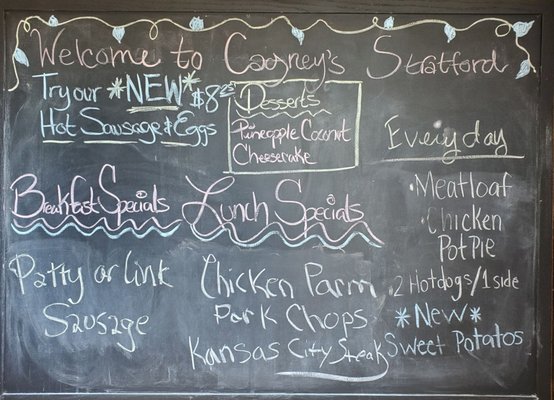 Welcome to Cagney's Stratford
Try our *NEW* $8.95
Hot Sausage & Eggs
Desserts
Pineapple Coconut
Cheesecake
Everyday
Meatloaf
Chicken
Pot Pie
2 Hotdogs/1 side
*New*
Sweet Potatos
Breakfast Specials
Patty or Link
Sausage
Lunch Specials
Chicken Parm
Pork Chops
Kansas City Steak